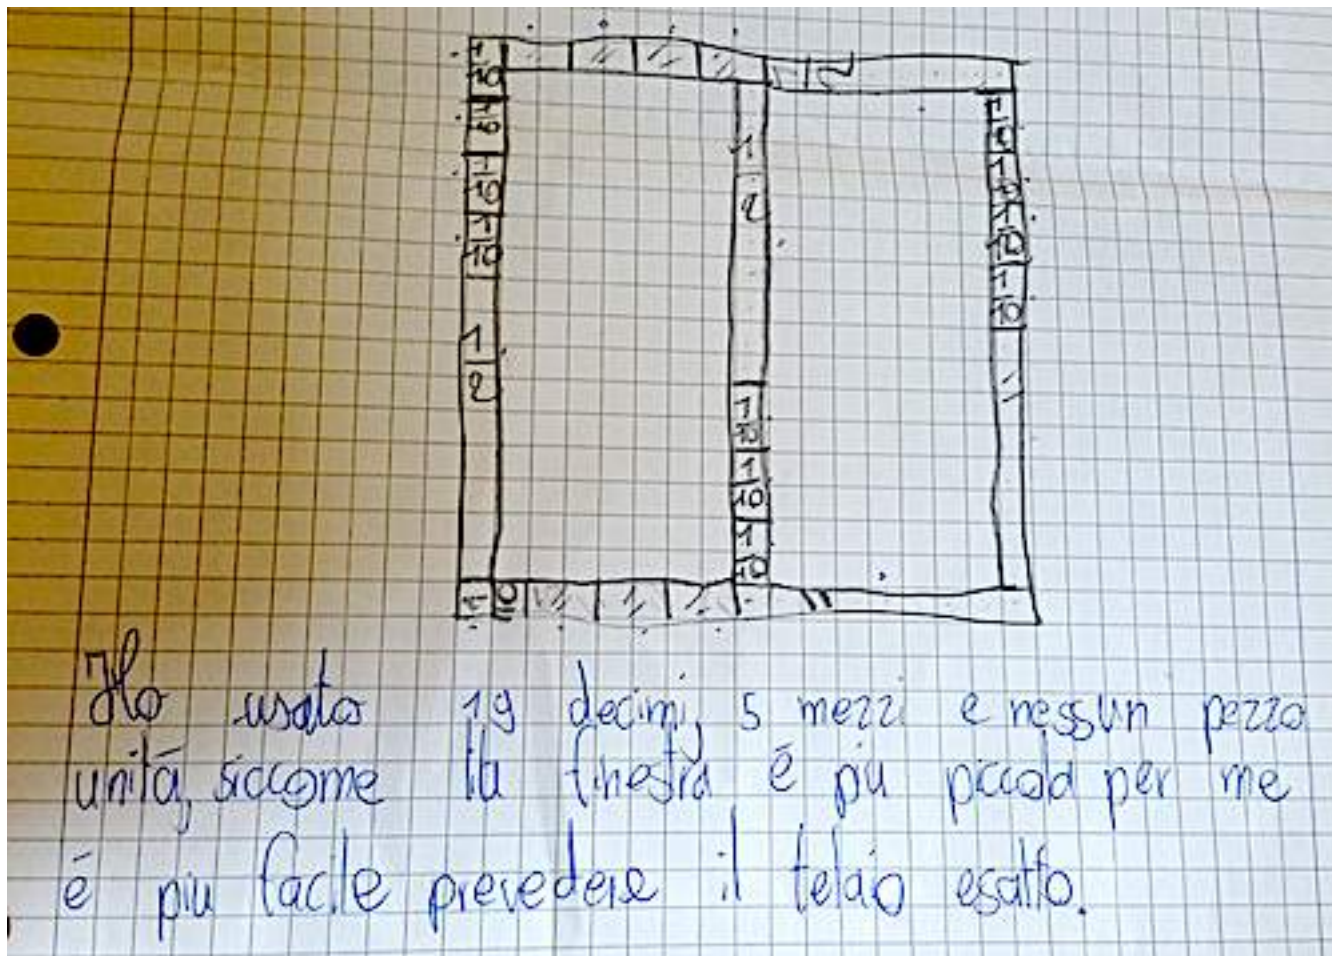 1
10
1
10
1
10
1
10
1
2
1
2
1
10
1
10
1
10
1
10
1
10
1
10
1
10
Ho usato 19 decimi, 5 mezzi e nessun pezzo
unitá, siccome la finestra é piu piccola per me
é piu facile prevedere il telaio esatto.